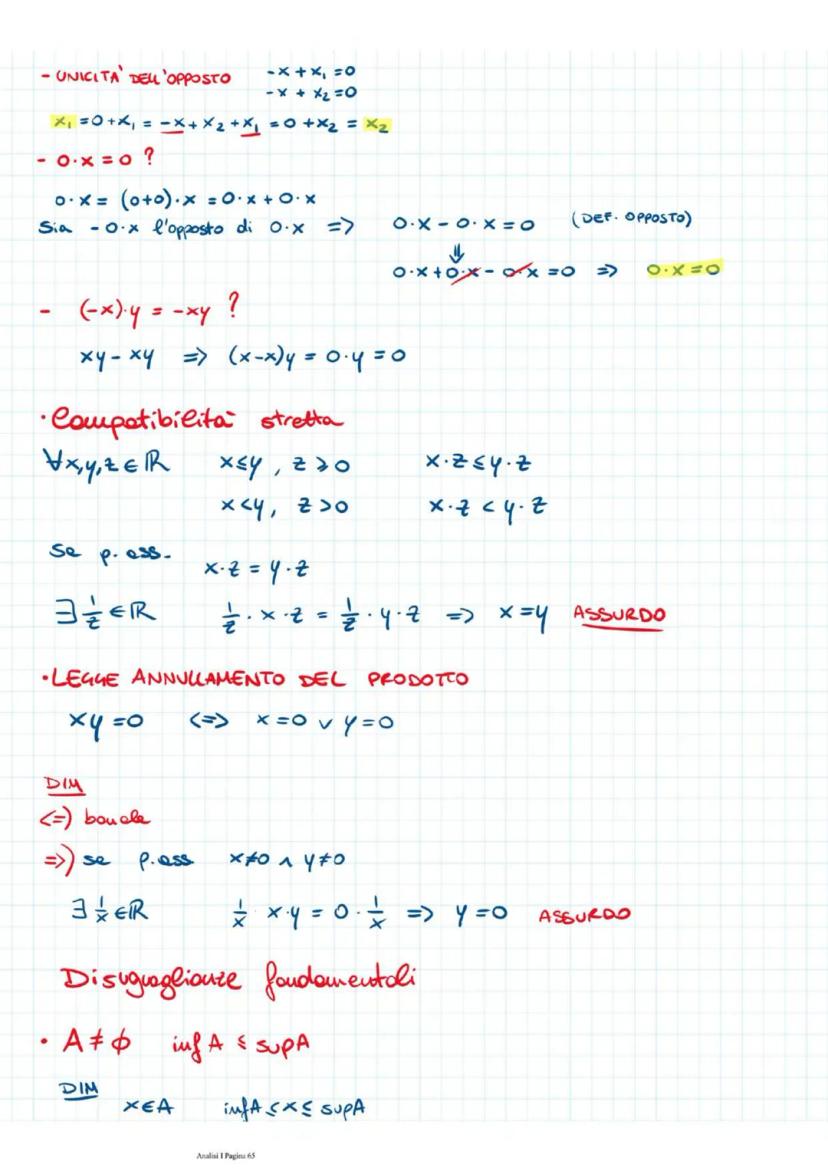 - UNICITA' DELL'OPPOSTO -x + x₁ = 0
-x + x₂ = 0
x₁ = 0 + x₁ = -x + x₂ + x₁ = 0 + x₂ = x₂
- 0·x = 0 ?
0·x = (0+0)·x = 0·x + 0·x
Sia -0·x l'opposto di 0·x => 0·x - 0·x = 0 (DEF. OPPOSTO)
⇓
0·x + 0·x - 0·x = 0 => 0·x = 0
- (-x)·y = -xy ?
xy - xy => (x-x)y = 0·y = 0
· Compatibilità stretta
∀x,y,z ∈ ℝ x ≤ y , z ≥ 0 x·z ≤ y·z
x < y, z > 0 x·z < y·z
Se p. ass. x·z = y·z
∃ 1/z ∈ ℝ 1/z · x · z = 1/z · y · z => x = y ASSURDO
· LEGGE ANNULLAMENTO DEL PRODOTTO
xy = 0 <=> x = 0 ∨ y = 0
DIM
<=) banale
=>) se p. ass x≠0 ∧ y≠0
∃ 1/x ∈ ℝ 1/x · x·y = 0 · 1/x => y = 0 ASSURDO
Disuguaglianze fondamentali
· A ≠ ϕ inf A ≤ sup A
DIM
x∈A infA ≤ x ≤ supA
Analisi I Pagina 65